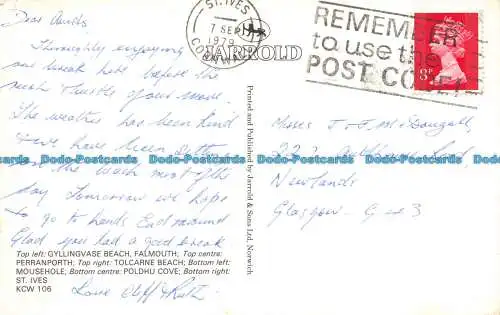 Dear Aunts
Thoroughly enjoying
our week here before the
next thistle of your move.
The weather has been kind
& we have been sitting
on the beach most of the
day. Tomorrow we hope
to go to Lands End around
Glad you had a good break
Love Cliff & Ruth
Top left: GYLLINGVASE BEACH, FALMOUTH; Top centre:
PERRANPORTH; Top right: TOLCARNE BEACH; Bottom left:
MOUSEHOLE; Bottom centre: POLDHU COVE; Bottom right:
ST. IVES
KCW 106
ST. IVES
7 SEP
1979
CORNWALL
JARROLD
Printed and Published by Jarrold & Sons Ltd. Norwich
REMEMBER
to use the
POST CODE
8P
Misses J & F. McDougall,
223 Road,
Newlands
Glasgow G43
Dodo-Postcards Dodo-Postcards Dodo-Postcards Dodo-Postcards Dodo-Postcards